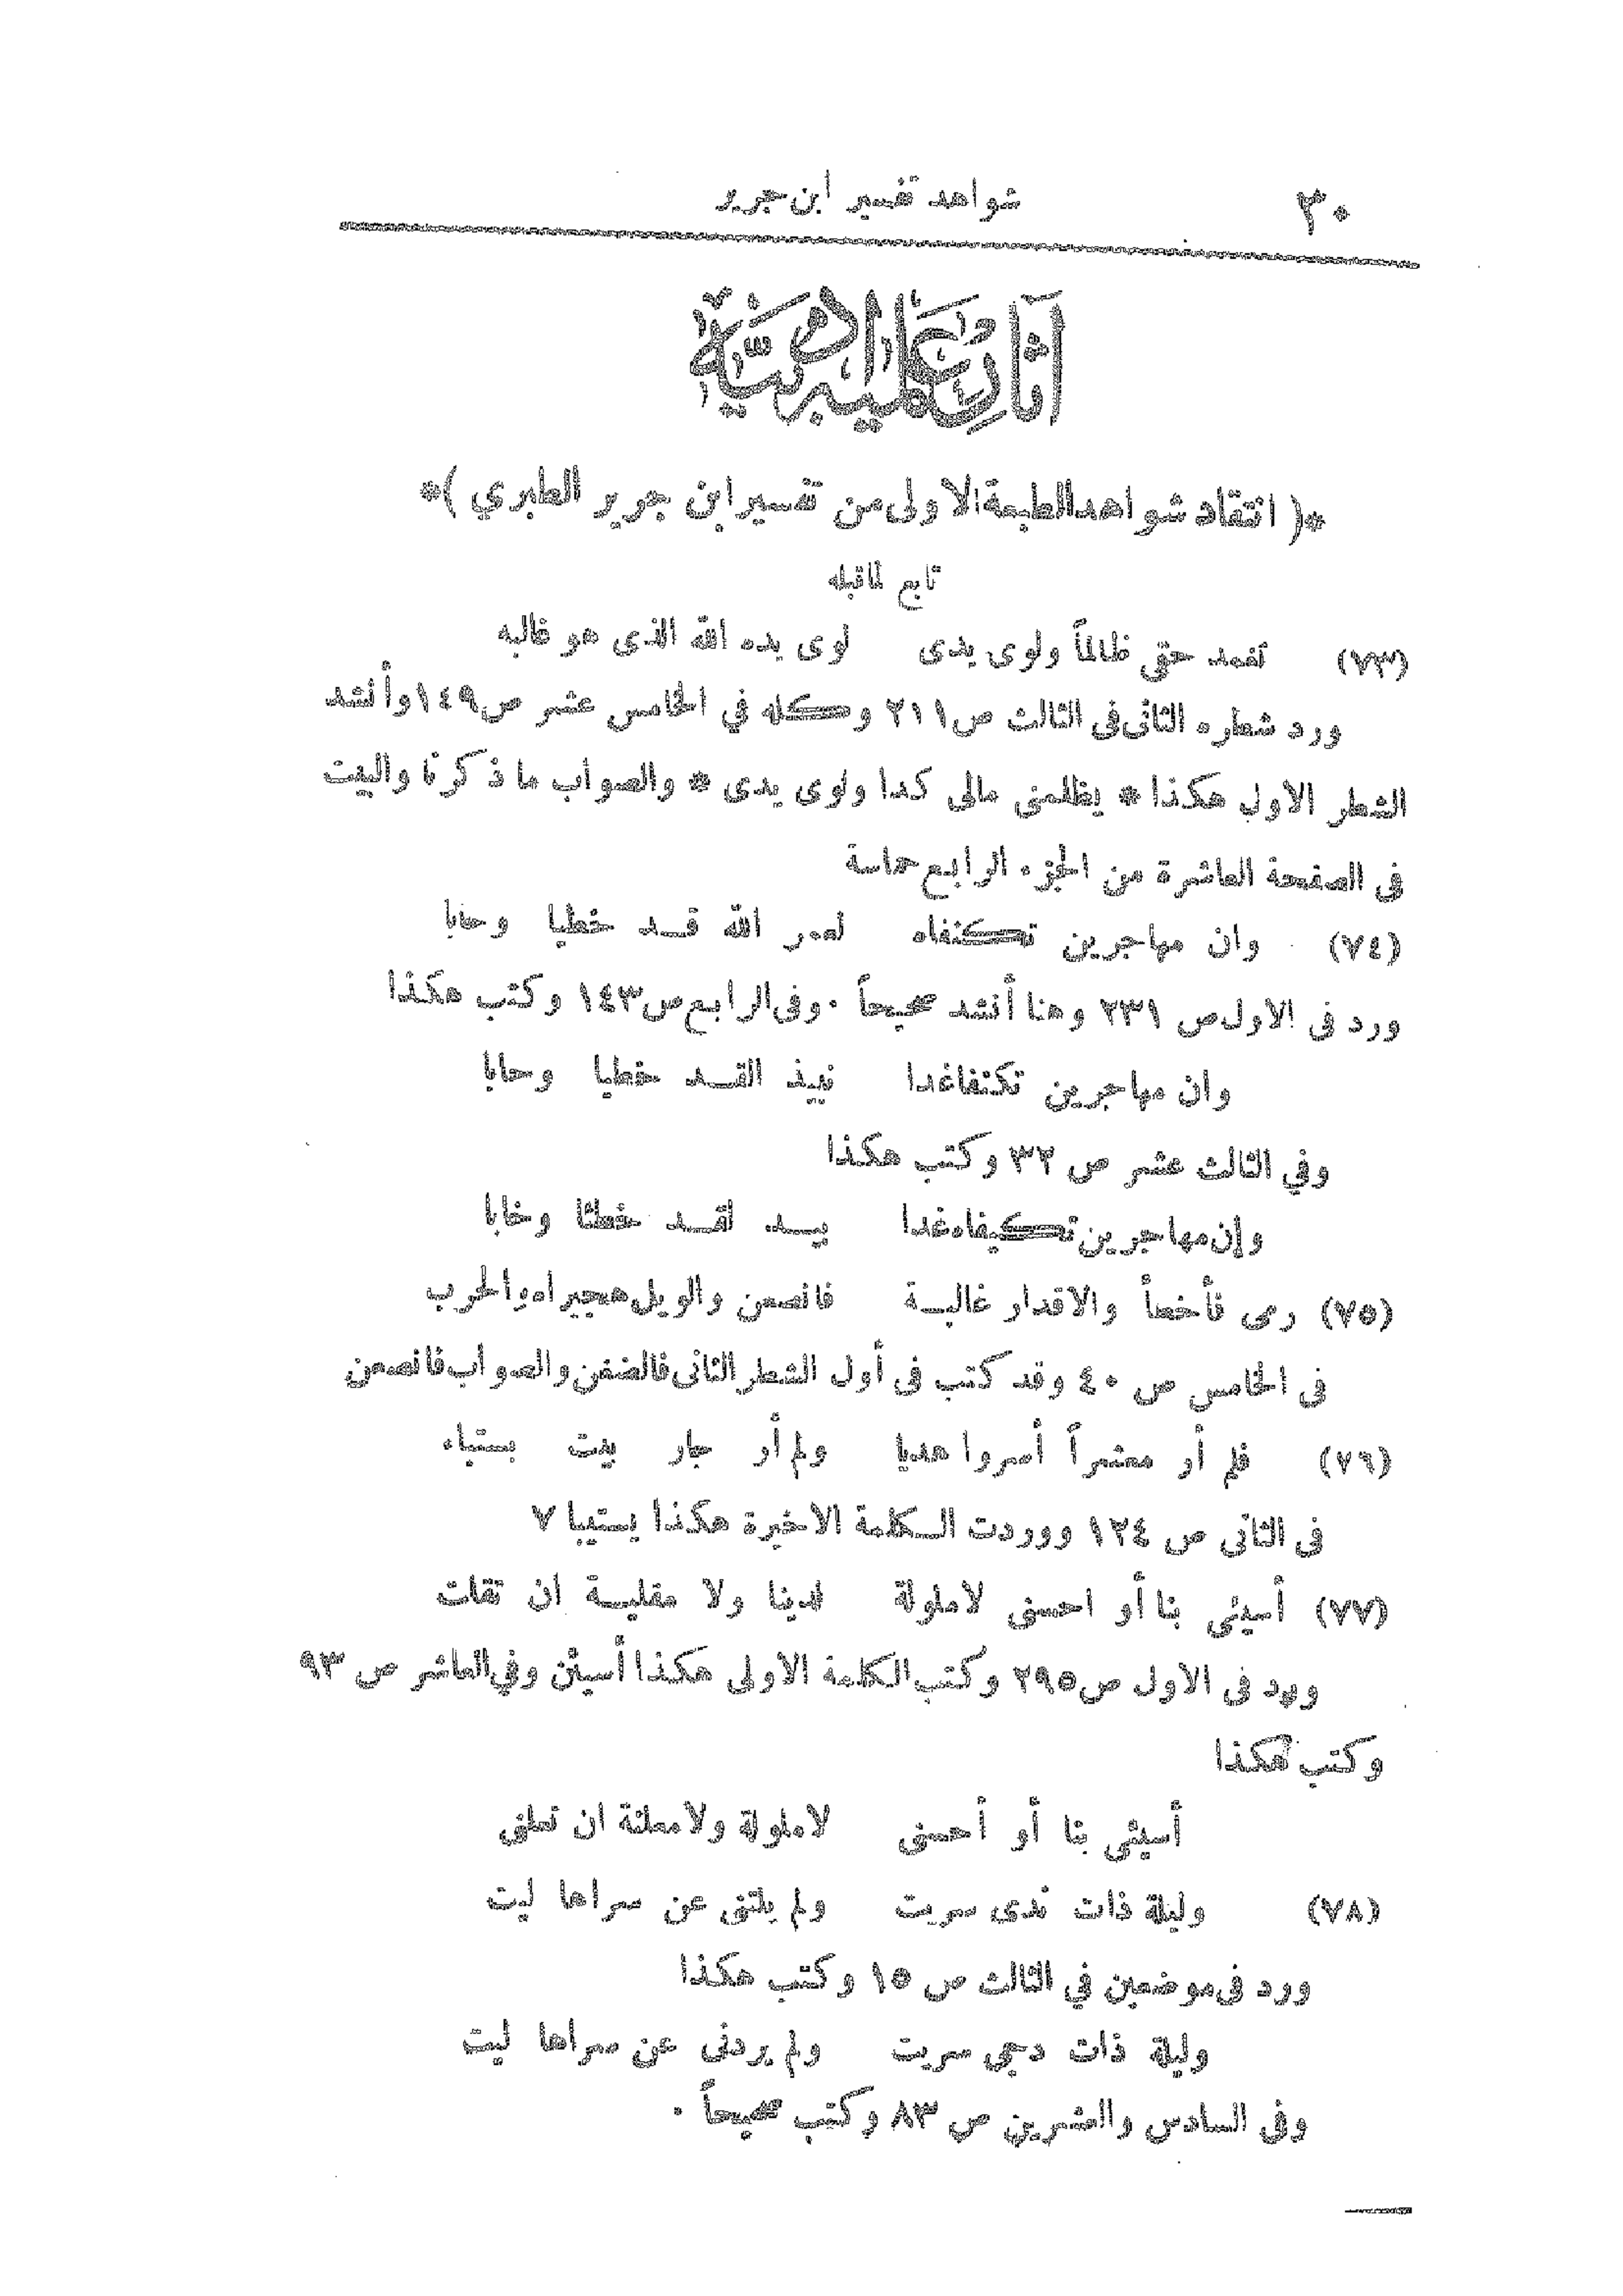 ٣٠ شواهد تفسير ابن جرير
آثار علمية ادبية
*( انتقاد شواهد الطبعة الاولى من تفسير ابن جرير الطبري )*
تابع لما قبله
(٧٣) تغمد حقى ظالماً ولوى يدى لوى يده الله الذى هو غالبه
ورد شطره الثانى فى الثالث ص ٢١١ وكله في الخامس عشر ص ١٤٩ وأنشد
الشطر الاول هكذا * يظلمنى مالى كدا ولوى يدى * والصواب ما ذكرنا والبيت
فى الصفحة العاشرة من الجزء الرابع حماسة
(٧٤) وان مهاجرين تكنفاه لعمر الله قد خطيا وحابا
ورد فى الاول ص ٢٣١ وهنا أنشد صحيحاً ٠ وفى الرابع ص ١٤٣ وكتب هكذا
وان مهاجرين تكنفاغدا نييذ القد خطيا وحابا
وفي الثالث عشر ص ٣٢ وكتب هكذا
وإن مهاجرين تكيفاه غدا بيد لقد خطئا وخابا
(٧٥) رمى فأخطأ والاقدار غالبة فانصعن والويل هجيراه والحرب
فى الخامس ص ٤٠ وقد كتب فى أول الشطر الثانى فالضفن والصواب فانصعن
(٧٦) فلم أر معشراً أسروا هديا ولم أر جار بيت يستباه
فى الثانى ص ١٢٤ ووردت الكلمة الاخيرة هكذا يستيبا ٧
(٧٧) أسيئى بنا أو احسنى لاملولة لدينا ولا مقلية ان تقلت
ورد فى الاول ص ٢٩٥ وكتب الكلمة الاولى هكذا أسيئن وفي العاشر ص ٩٣
وكتب هكذا
أسيئى بنا أو أحسنى لاملولة ولا معلنة ان تعلنى
(٧٨) وليلة ذات ندى سريت ولم يلتنى عن سراها ليت
ورد فى موضعين في الثالث ص ١٥ وكتب هكذا
وليلة ذات دجى سريت ولم يردنى عن سراها ليت
وفى السادس والعشرين ص ٨٣ وكتب صحيحاً ٠